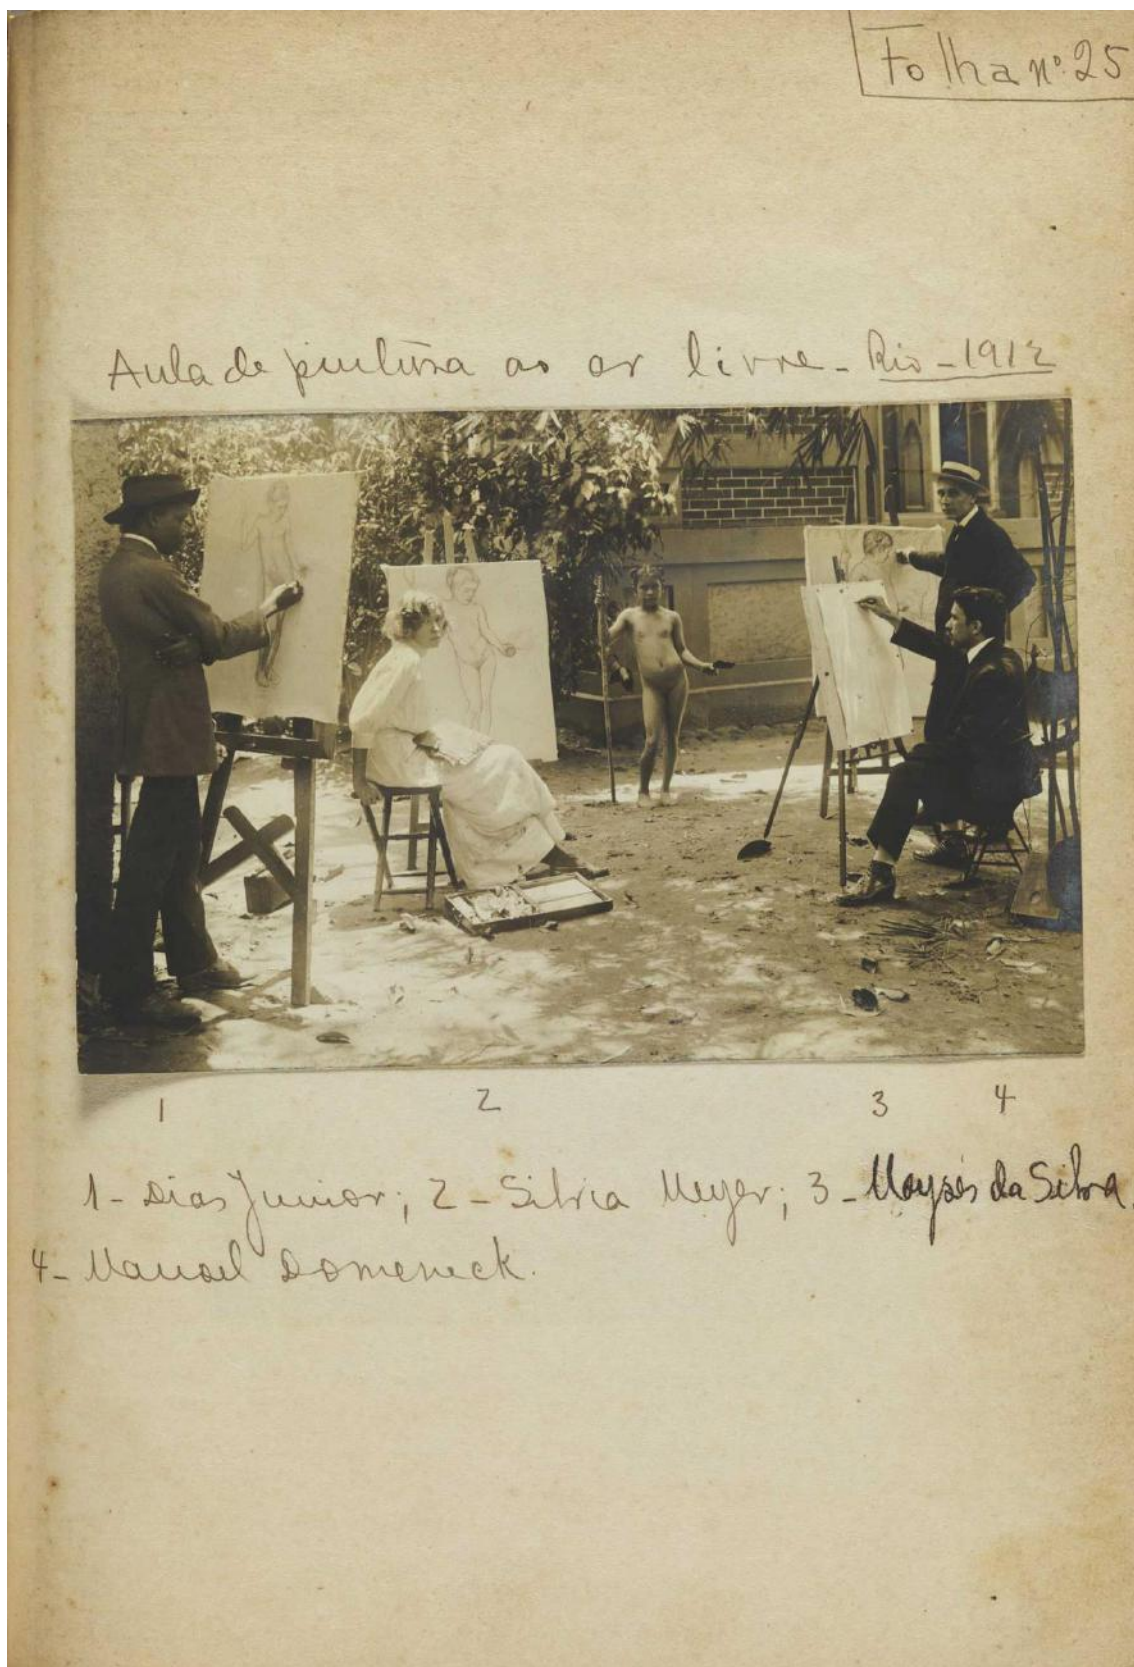 Folha nº 25
Aula de pintura ao ar livre - Rio - 1912
1 2 3 4
1 - Dias Junior; 2 - Silvia Meyer; 3 - Moysés da Silva.
4 - Manoel Domeneck.